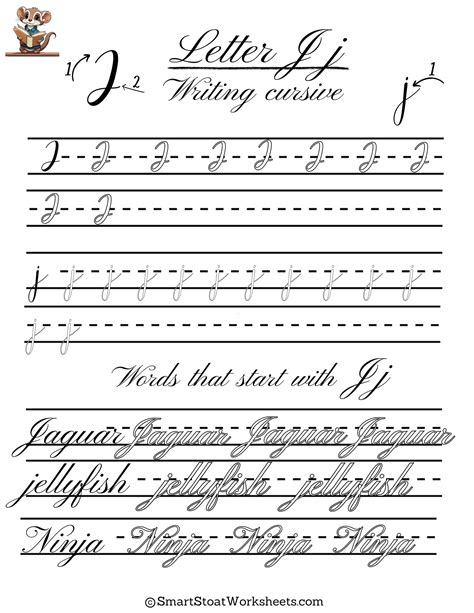 Letter J j
1 J 2
j 1
Writing cursive
J J J J J J J J
J J
j j j j j j j j j j
j j
Words that start with J j
Jaguar Jaguar Jaguar Jaguar
jellyfish jellyfish jellyfish
Ninja Ninja Ninja Ninja
©SmartStoatWorksheets.com